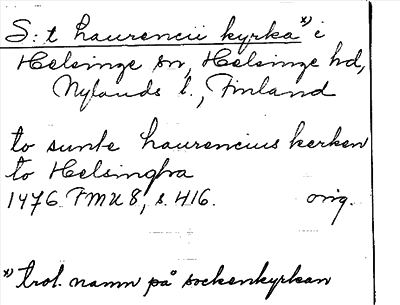 S:t Laurencii kyrka x) i
Helsinge sn, Helsinge hd,
Nylands l., Finland
to sunte Laurencius kerken
to Helsingha
1476 FMU 8, s. 416. orig.
x) trol. namn på sockenkyrkan